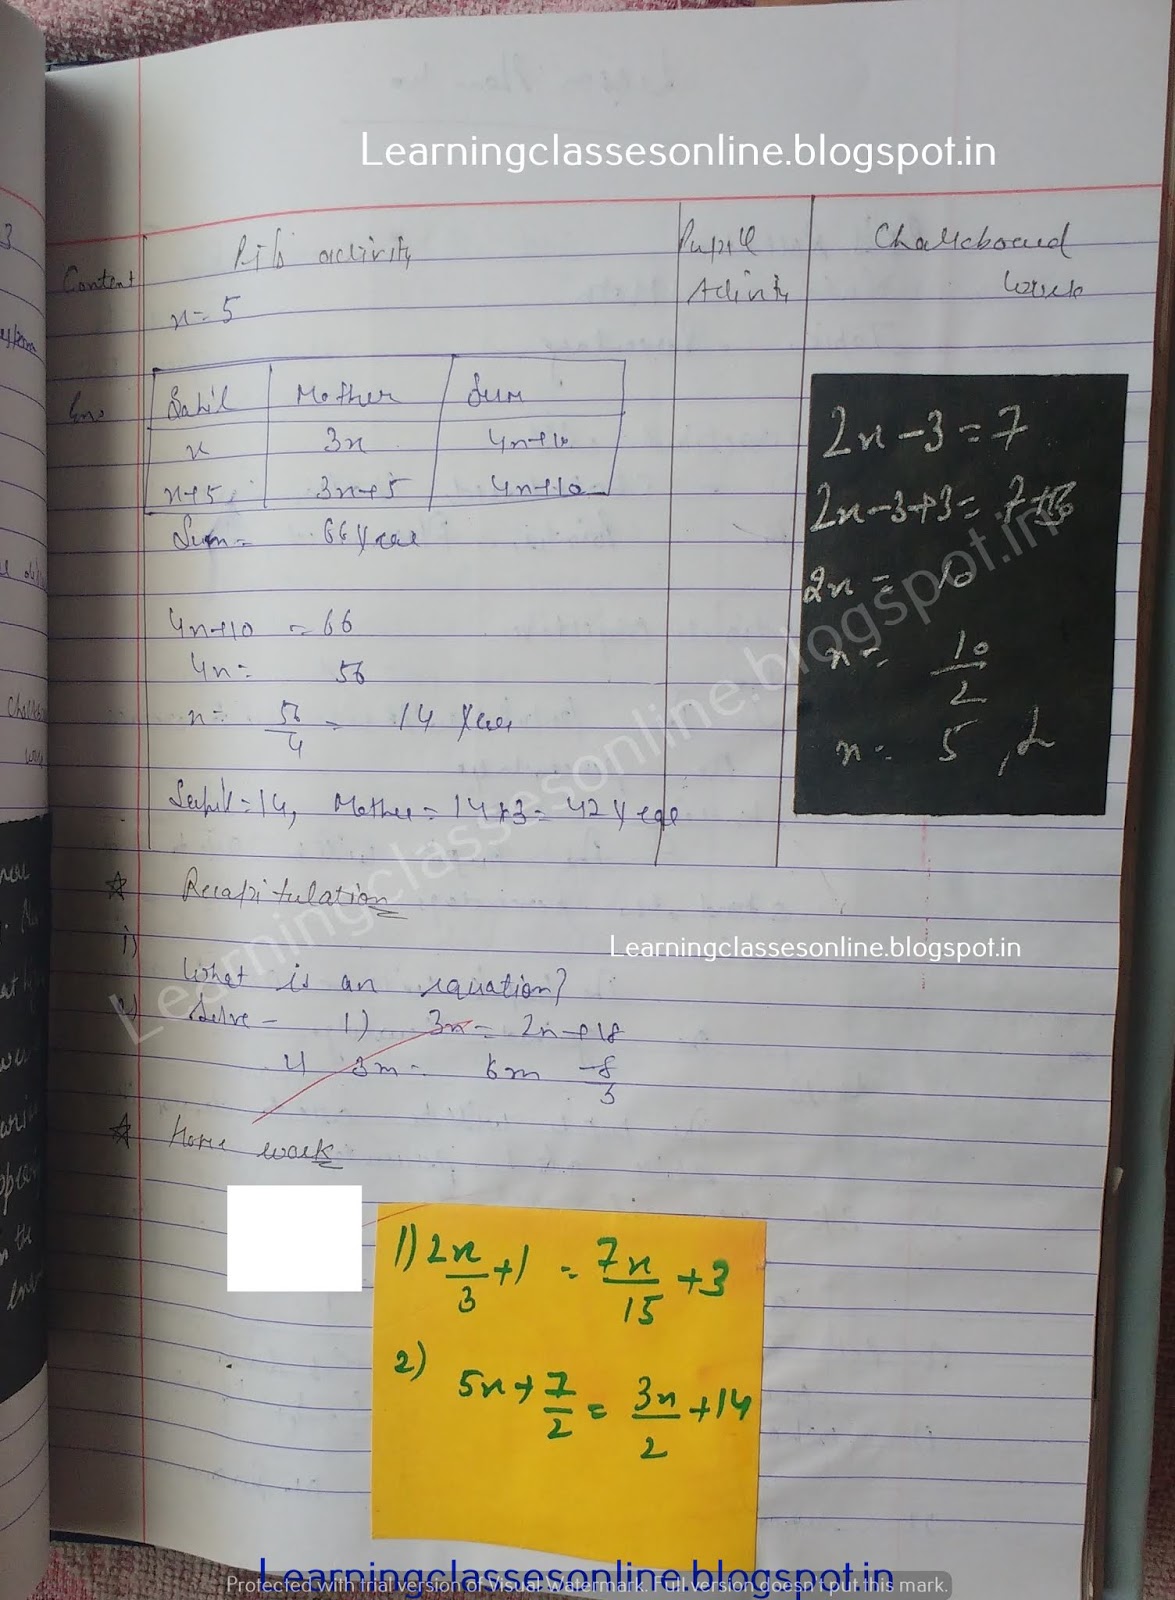 Learningclassesonline.blogspot.in
Content
activity
Pupil
Activity
Chalkboard
work
x = 5
Sahil Mother Sum
x 3x 4x+10
x+5 3x+5 4x+10
Sum = 66 Year
4x+10 = 66
4x = 56
x = 56/4 = 14 Year
Sahil = 14, Mother = 14×3 = 42 Year
2x - 3 = 7
2x-3+3 = 7+3
2x = 10
x = 10/2
x = 5
Learningclassesonline.blogspot.in
☆ Recapitulation
Learningclassesonline.blogspot.in
i)
What is an equation?
Solve - 1) 3x = 2x+18
3m = 5m -8/3
☆ Home work
1) 2x/3 + 1 = 7x/15 + 3
2) 5x + 7/2 = 3x/2 + 14
Learningclassesonline.blogspot.in
Protected with trial version of Visual Watermark. Full version doesn't put this mark.